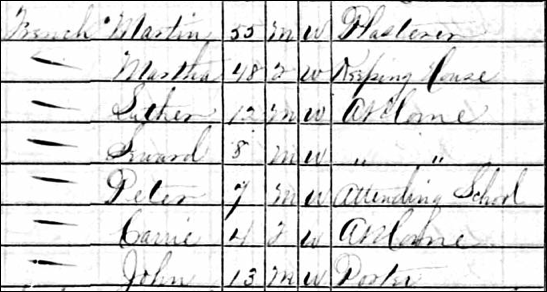 French Martin 55 m w Plasterer
— Martha 48 f w Keeping House
— Luther 12 m w At Home
— Seward 8 m w " "
— Peter 7 m w Attending School
— Carrie 4 f w At Home
— John 13 m w Porter